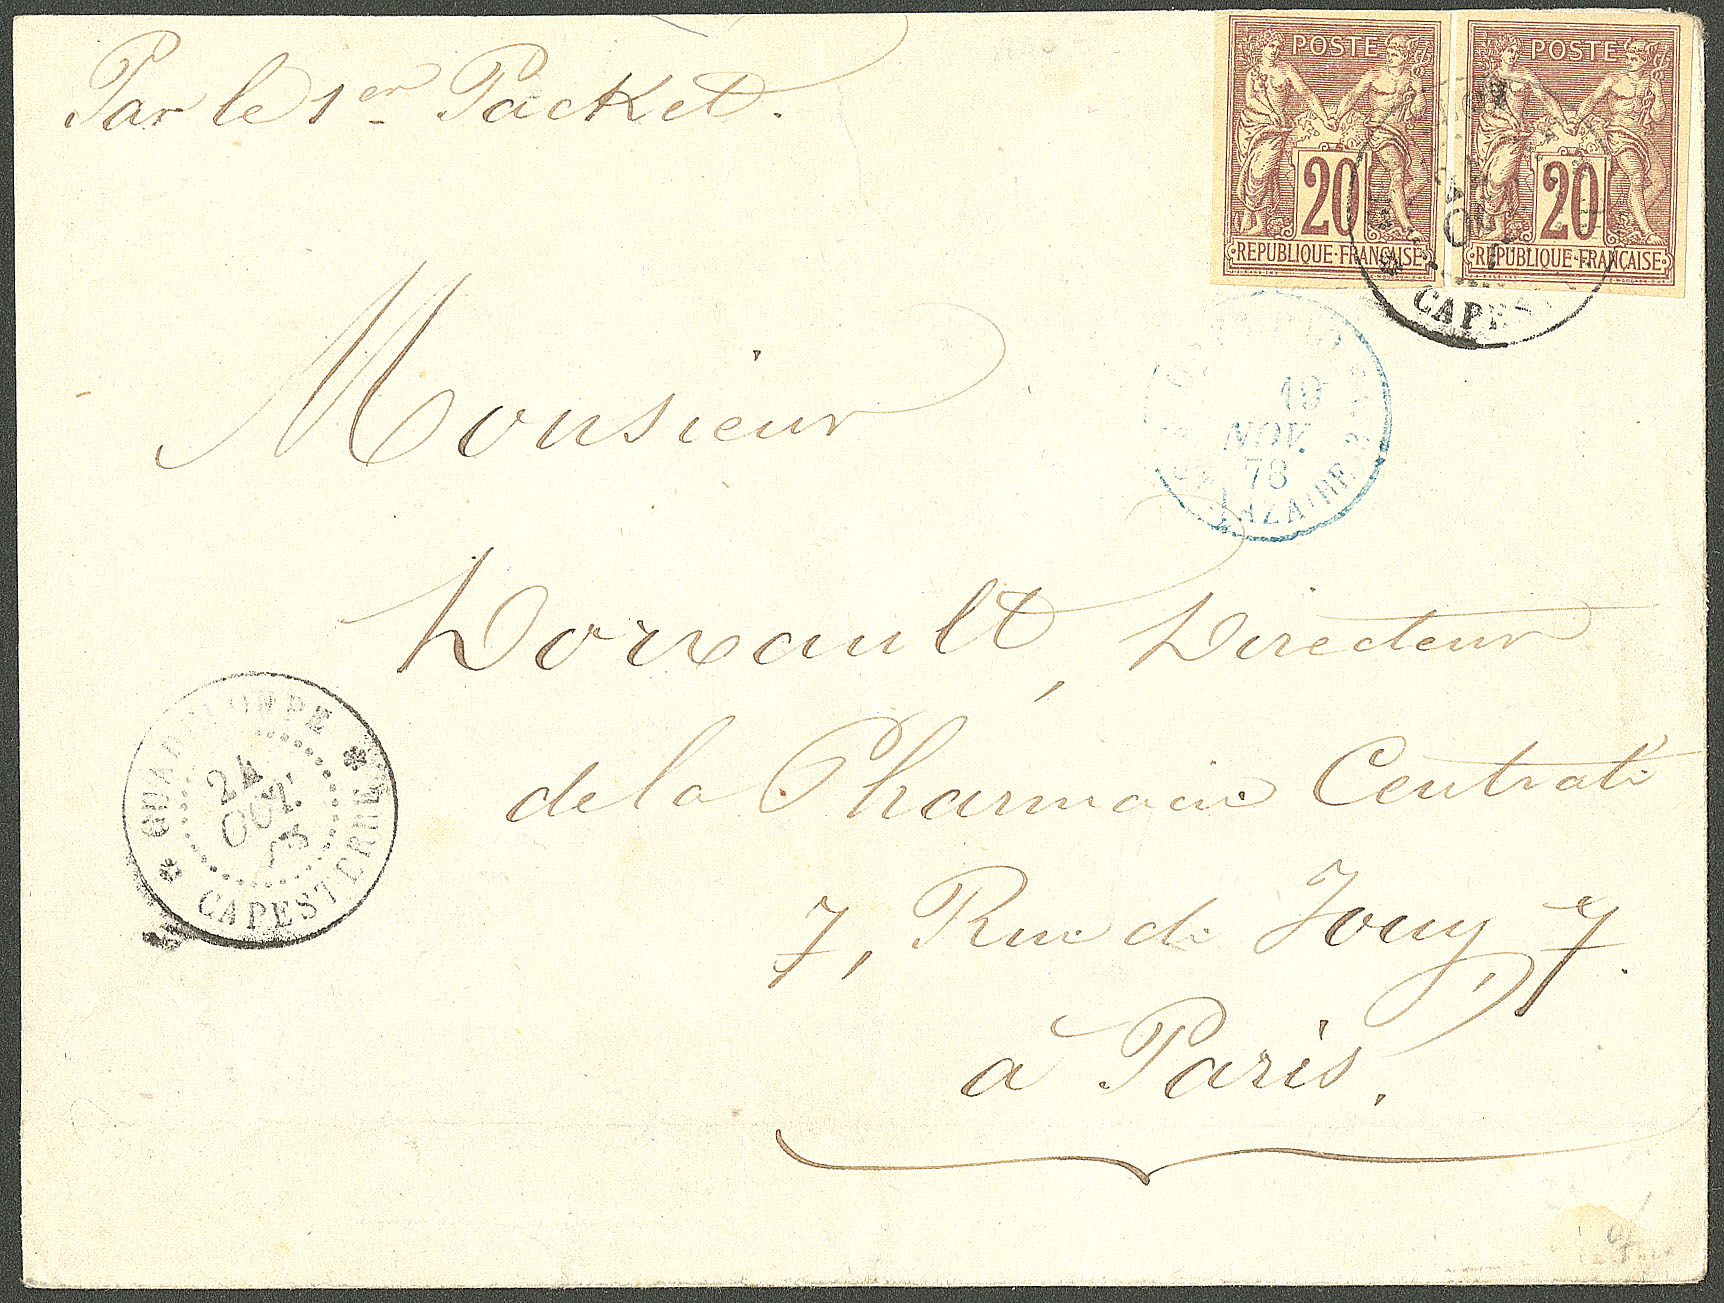 Par le 1er Packet.
POSTE
20
REPUBLIQUE FRANÇAISE
POSTE
20
REPUBLIQUE FRANÇAISE
CAPES
19
NOV.
78
ST NAZAIRE
Monsieur
Dorvault, Directeur
de la Pharmacie Centrale
7, Rue de Jouy, 7.
à Paris.
GUADELOUPE
24
OCT.
CAPESTERRE